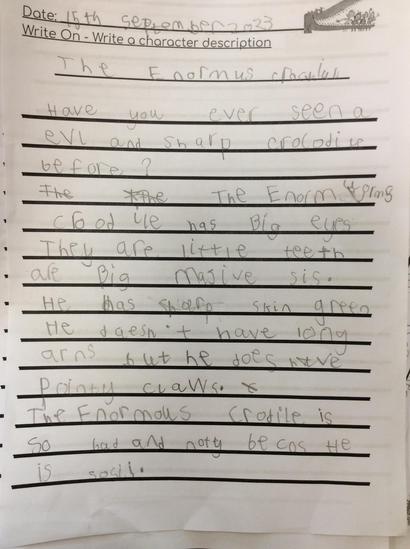 Date: 15th september 2023
Write On - Write a character description
The Enormus
Have you ever seen a
evl and sharp crocodile
before?
The The The Enorm
crood ile has Big eyes
They are little teeth
are Big masive sis.
He has sharp skin green
He doesn't have long
arns but he does have
pointy claws.
The Enormous Crodile is
so bad and noty becos He
is